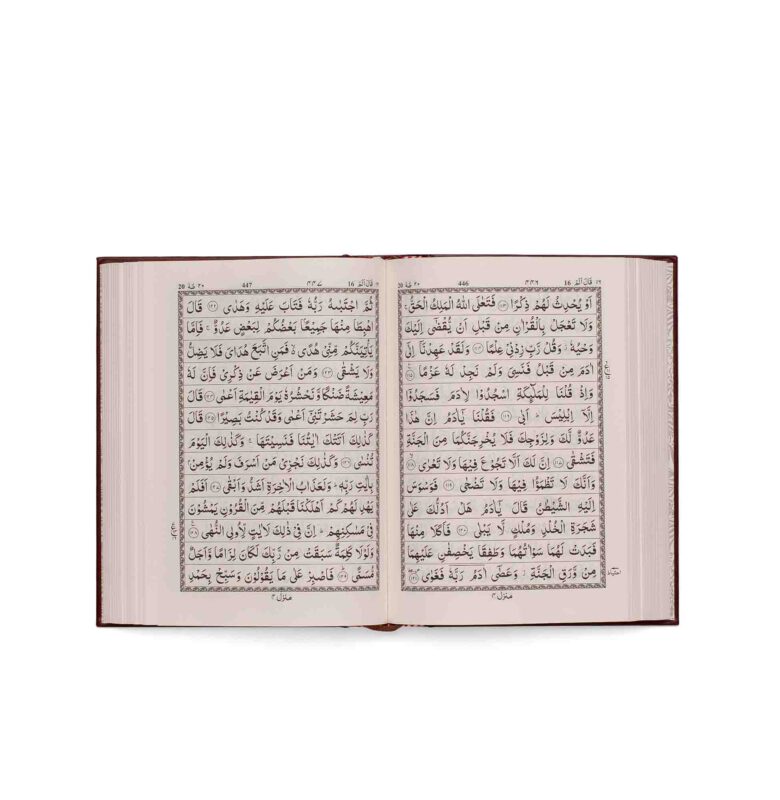 قَالَ اَلَمْ 16 ٣٣٦ 446 طٰهٰ ٢٠
اَوْ يُحْدِثُ لَهُمْ ذِكْرًا ﴿١١٣﴾ فَتَعٰلَى اللّٰهُ الْمَلِكُ الْحَقُّ ۚ
وَلَا تَعْجَلْ بِالْقُرْاٰنِ مِنْ قَبْلِ اَنْ يُّقْضٰٓى اِلَيْكَ
وَحْيُهٗ ؗ وَقُلْ رَّبِّ زِدْنِيْ عِلْمًا ﴿١١٤﴾ وَلَقَدْ عَهِدْنَآ اِلٰٓى
اٰدَمَ مِنْ قَبْلُ فَنَسِيَ وَلَمْ نَجِدْ لَهٗ عَزْمًا ﴿١١٥﴾
وَاِذْ قُلْنَا لِلْمَلٰٓئِكَةِ اسْجُدُوْا لِاٰدَمَ فَسَجَدُوْٓا
اِلَّآ اِبْلِيْسَ ؕ اَبٰى ﴿١١٦﴾ فَقُلْنَا يٰٓاٰدَمُ اِنَّ هٰذَا
عَدُوٌّ لَّكَ وَلِزَوْجِكَ فَلَا يُخْرِجَنَّكُمَا مِنَ الْجَنَّةِ
فَتَشْقٰى ﴿١١٧﴾ اِنَّ لَكَ اَلَّا تَجُوْعَ فِيْهَا وَلَا تَعْرٰى ﴿١١٨﴾
وَاَنَّكَ لَا تَظْمَؤُا فِيْهَا وَلَا تَضْحٰى ﴿١١٩﴾ فَوَسْوَسَ
اِلَيْهِ الشَّيْطٰنُ قَالَ يٰٓاٰدَمُ هَلْ اَدُلُّكَ عَلٰى
شَجَرَةِ الْخُلْدِ وَمُلْكٍ لَّا يَبْلٰى ﴿١٢٠﴾ فَاَكَلَا مِنْهَا
فَبَدَتْ لَهُمَا سَوْاٰتُهُمَا وَطَفِقَا يَخْصِفٰنِ عَلَيْهِمَا
مِنْ وَّرَقِ الْجَنَّةِ ؗ وَعَصٰٓى اٰدَمُ رَبَّهٗ فَغَوٰى ﴿١٢١﴾
منزل ٤
قَالَ اَلَمْ 16 ٣٣٧ 447 طٰهٰ ٢٠ 20
ثُمَّ اجْتَبٰهُ رَبُّهٗ فَتَابَ عَلَيْهِ وَهَدٰى ﴿١٢٢﴾ قَالَ
اهْبِطَا مِنْهَا جَمِيْعًۢا بَعْضُكُمْ لِبَعْضٍ عَدُوٌّ ۚ فَاِمَّا
يَاْتِيَنَّكُمْ مِّنِّيْ هُدًى ۙ۬ فَمَنِ اتَّبَعَ هُدَايَ فَلَا يَضِلُّ
وَلَا يَشْقٰى ﴿١٢٣﴾ وَمَنْ اَعْرَضَ عَنْ ذِكْرِيْ فَاِنَّ لَهٗ
مَعِيْشَةً ضَنْكًا وَّنَحْشُرُهٗ يَوْمَ الْقِيٰمَةِ اَعْمٰى ﴿١٢٤﴾ قَالَ
رَبِّ لِمَ حَشَرْتَنِيْٓ اَعْمٰى وَقَدْ كُنْتُ بَصِيْرًا ﴿١٢٥﴾ قَالَ
كَذٰلِكَ اَتَتْكَ اٰيٰتُنَا فَنَسِيْتَهَا ۚ وَكَذٰلِكَ الْيَوْمَ
تُنْسٰى ﴿١٢٦﴾ وَكَذٰلِكَ نَجْزِيْ مَنْ اَسْرَفَ وَلَمْ يُؤْمِنْۢ
بِاٰيٰتِ رَبِّهٖ ؕ وَلَعَذَابُ الْاٰخِرَةِ اَشَدُّ وَاَبْقٰى ﴿١٢٧﴾ اَفَلَمْ
يَهْدِ لَهُمْ كَمْ اَهْلَكْنَا قَبْلَهُمْ مِّنَ الْقُرُوْنِ يَمْشُوْنَ
فِيْ مَسٰكِنِهِمْ ؕ اِنَّ فِيْ ذٰلِكَ لَاٰيٰتٍ لِّاُولِي النُّهٰى ﴿١٢٨﴾
وَلَوْلَا كَلِمَةٌ سَبَقَتْ مِنْ رَّبِّكَ لَكَانَ لِزَامًا وَّاَجَلٌ
مُّسَمًّى ﴿١٢٩﴾ فَاصْبِرْ عَلٰى مَا يَقُوْلُوْنَ وَسَبِّحْ بِحَمْدِ
منزل ٤